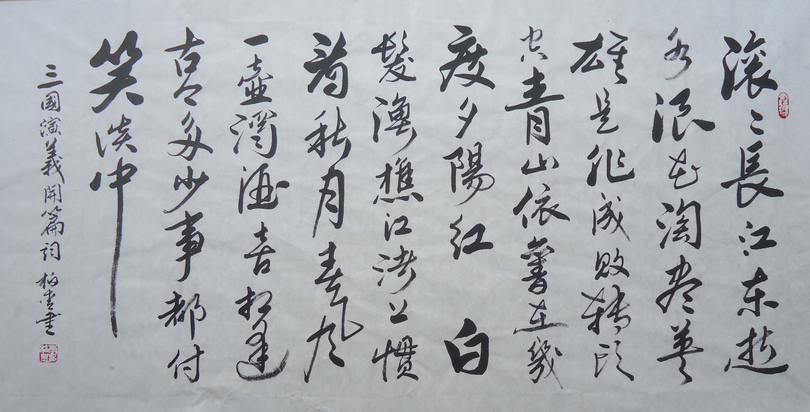 滚〻長江東逝
水浪花淘盡英
雄是非成敗轉頭
空青山依舊在幾
度夕陽紅 白
髮漁樵江渚上慣
看秋月春風
一壺濁酒喜相逢
古今多少事都付
笑談中
三國演義開篇詞 柏堂書